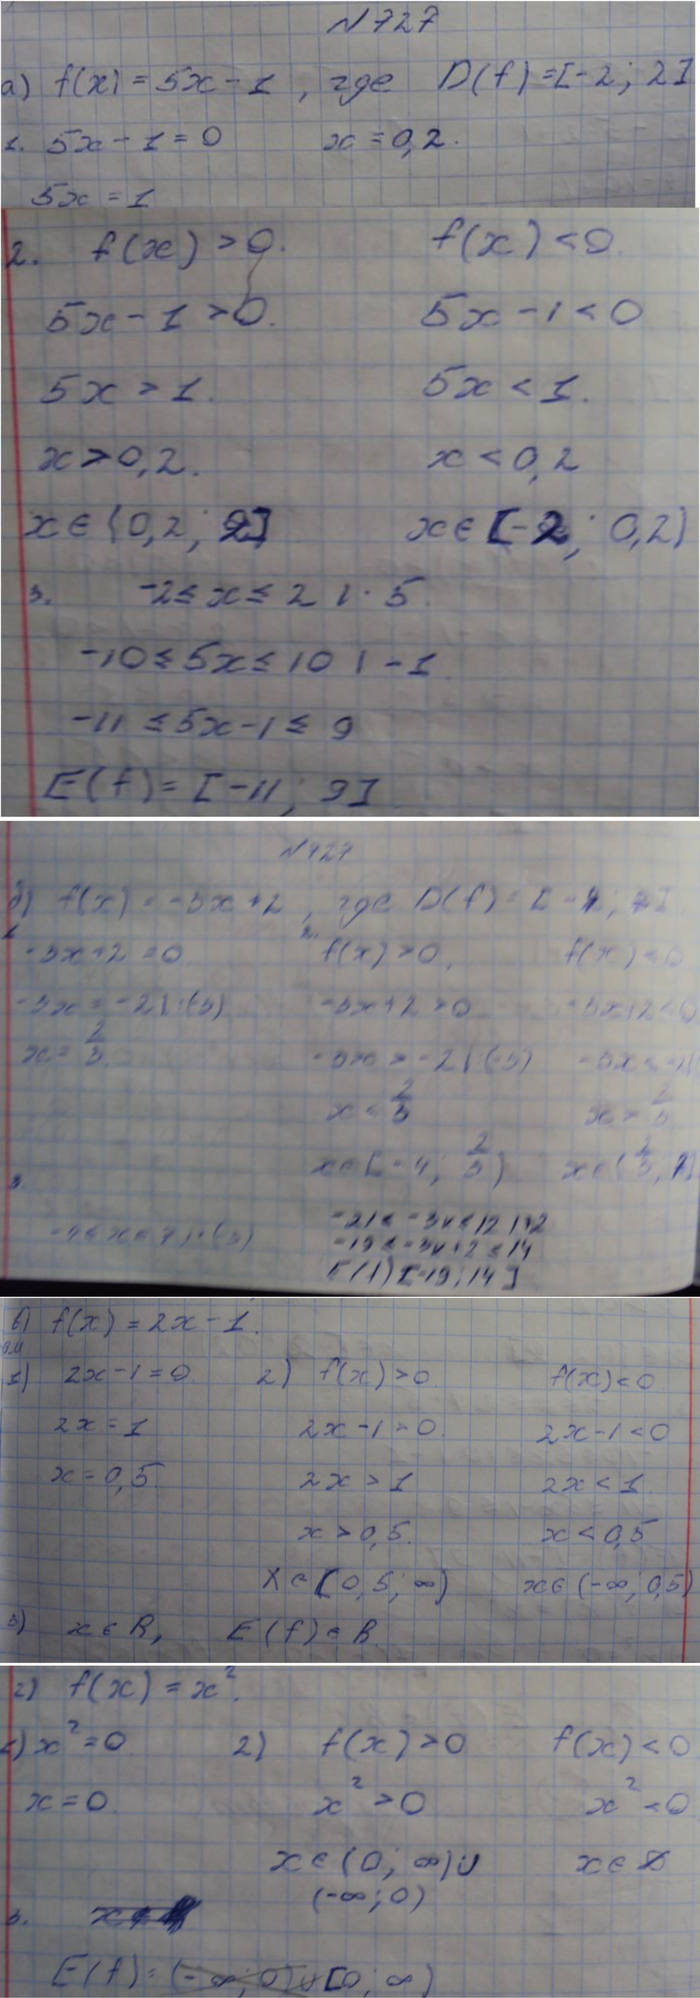 N727
а) f(x) = 5x - 1, где D(f) = [-2; 2]
1. 5x - 1 = 0 x = 0,2.
5x = 1
2. f(x) > 0. f(x) < 0.
5x - 1 > 0. 5x - 1 < 0
5x > 1. 5x < 1.
x > 0,2. x < 0,2
x ∈ (0,2; 2] x ∈ [-2; 0,2)
3. -2 ≤ x ≤ 2 | · 5.
-10 ≤ 5x ≤ 10 | - 1
-11 ≤ 5x - 1 ≤ 9
E(f) = [-11; 9]
N727
б) f(x) = -3x + 2, где D(f) = [-4; 7]
1. -3x + 2 = 0 2. f(x) > 0, f(x) < 0
-3x = -2 | : (-3) -3x + 2 > 0 -3x + 2 < 0
x = 2/3 -3x > -2 | (-3) -3x < -2 |
x < 2/3 x > 2/3
x ∈ [-4; 2/3) x ∈ (2/3; 7]
3.
-4 ≤ x ≤ 7 | · (-3) -21 ≤ -3x ≤ 12 | +2
-19 ≤ -3x + 2 ≤ 14
E(f) [-19; 14]
в) f(x) = 2x - 1.
1) 2x - 1 = 0 2) f(x) > 0 f(x) < 0
2x = 1 2x - 1 > 0. 2x - 1 < 0
x = 0,5. 2x > 1 2x < 1.
x > 0,5. x < 0,5
x ∈ (0,5; ∞) x ∈ (-∞; 0,5)
3) x ∈ R, E(f) ∈ R
г) f(x) = x².
1) x² = 0 2) f(x) > 0 f(x) < 0
x = 0. x² > 0 x² < 0
x ∈ (0; ∞) ∪ x ∈ ∅
(-∞; 0)
3.
E(f) = [0; ∞)